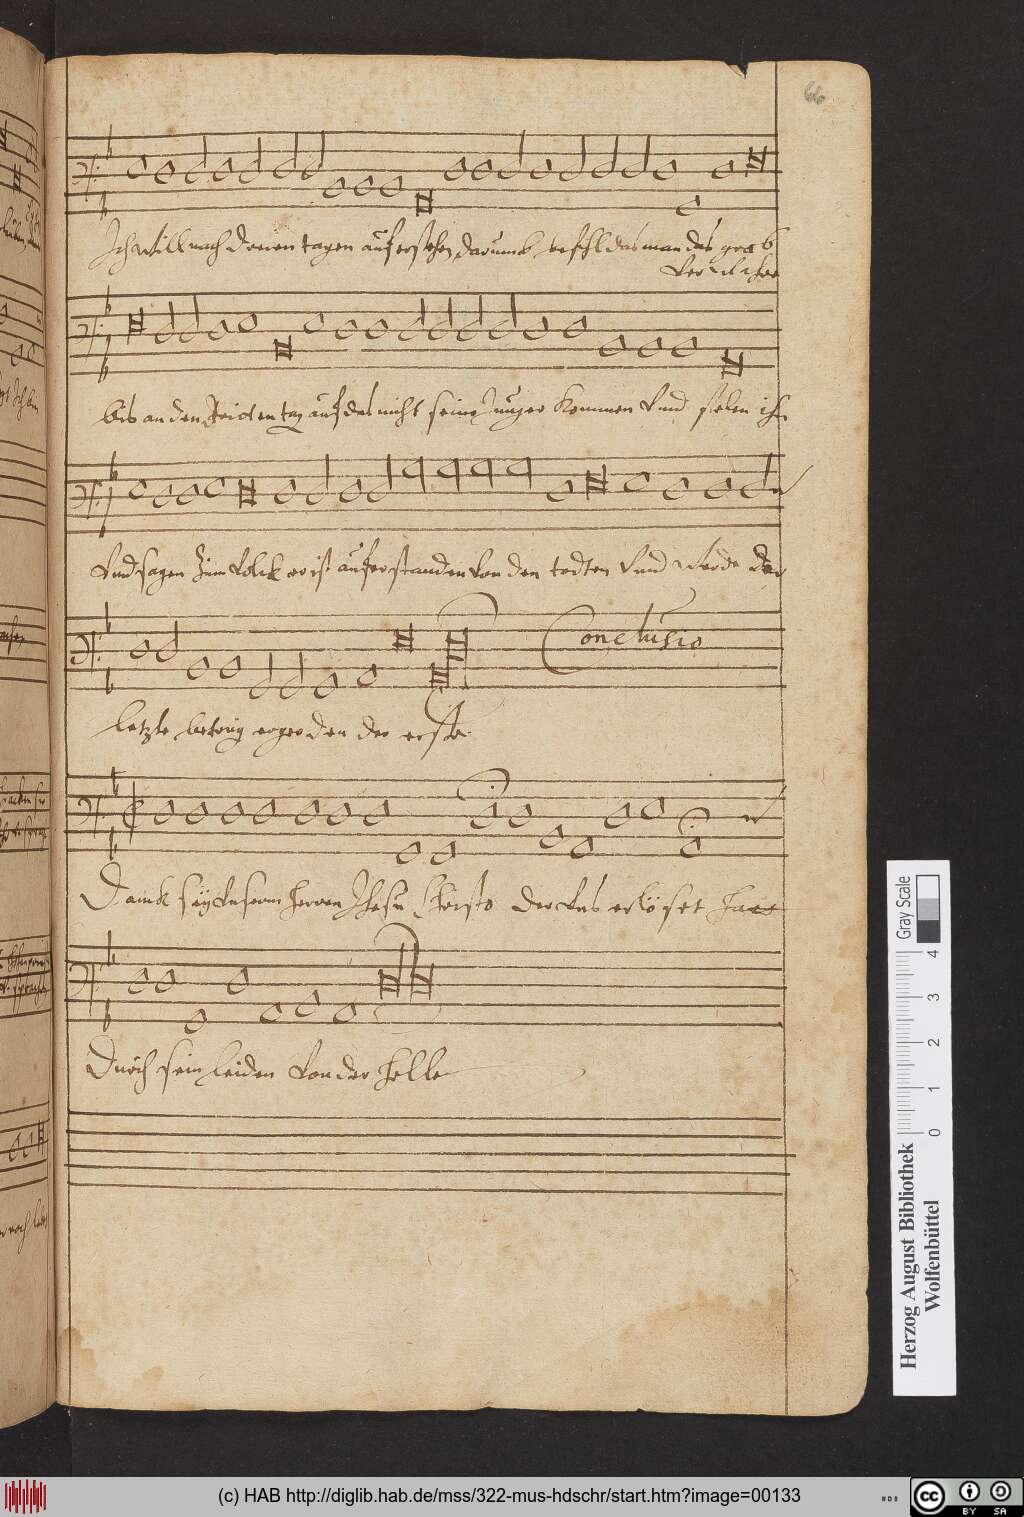 66
Ich will nach dreien tagen auferstehen, darumb befehl das man das grab
verwahre
bis an den dritten tag auf das nicht seine Junger kommen vnd stelen ihn
Vnd sagen zum Volck er ist auferstanden von den todten vnd werde der
Conclusio
letzte betrug erger den der erste
Danck seÿ vnserm herren Jhesu Christo der vns erlöset hatt
Durch sein leiden von der helle
Gray Scale
0 1 2 3 4
Herzog August Bibliothek
Wolfenbüttel
(c) HAB http://diglib.hab.de/mss/322-mus-hdschr/start.htm?image=00133
cc BY SA